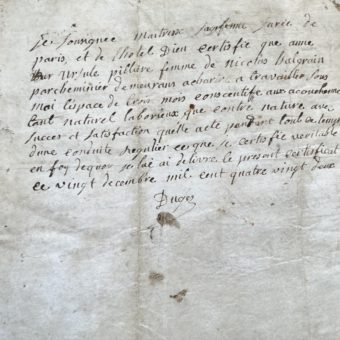 Je soussignee Maitresse sagefemme juree de
paris, et de lhotel Dieu certifie que anne
Ursule pilliere femme de nicolas halgrain
parcheminier demeurans a a travaillé sous
moi lespace de trois mois consecutife aux acouchemens
tant naturel laborieux que contre nature avec
succes et satisfaction quelle a eté pendant tout ce temps
dune conduite reguliere ce que je certifie veritable
en foy dequoi je lui ai delivré le present certificat
ce vingt decembre mil cent quatre vingt deux
Dugès